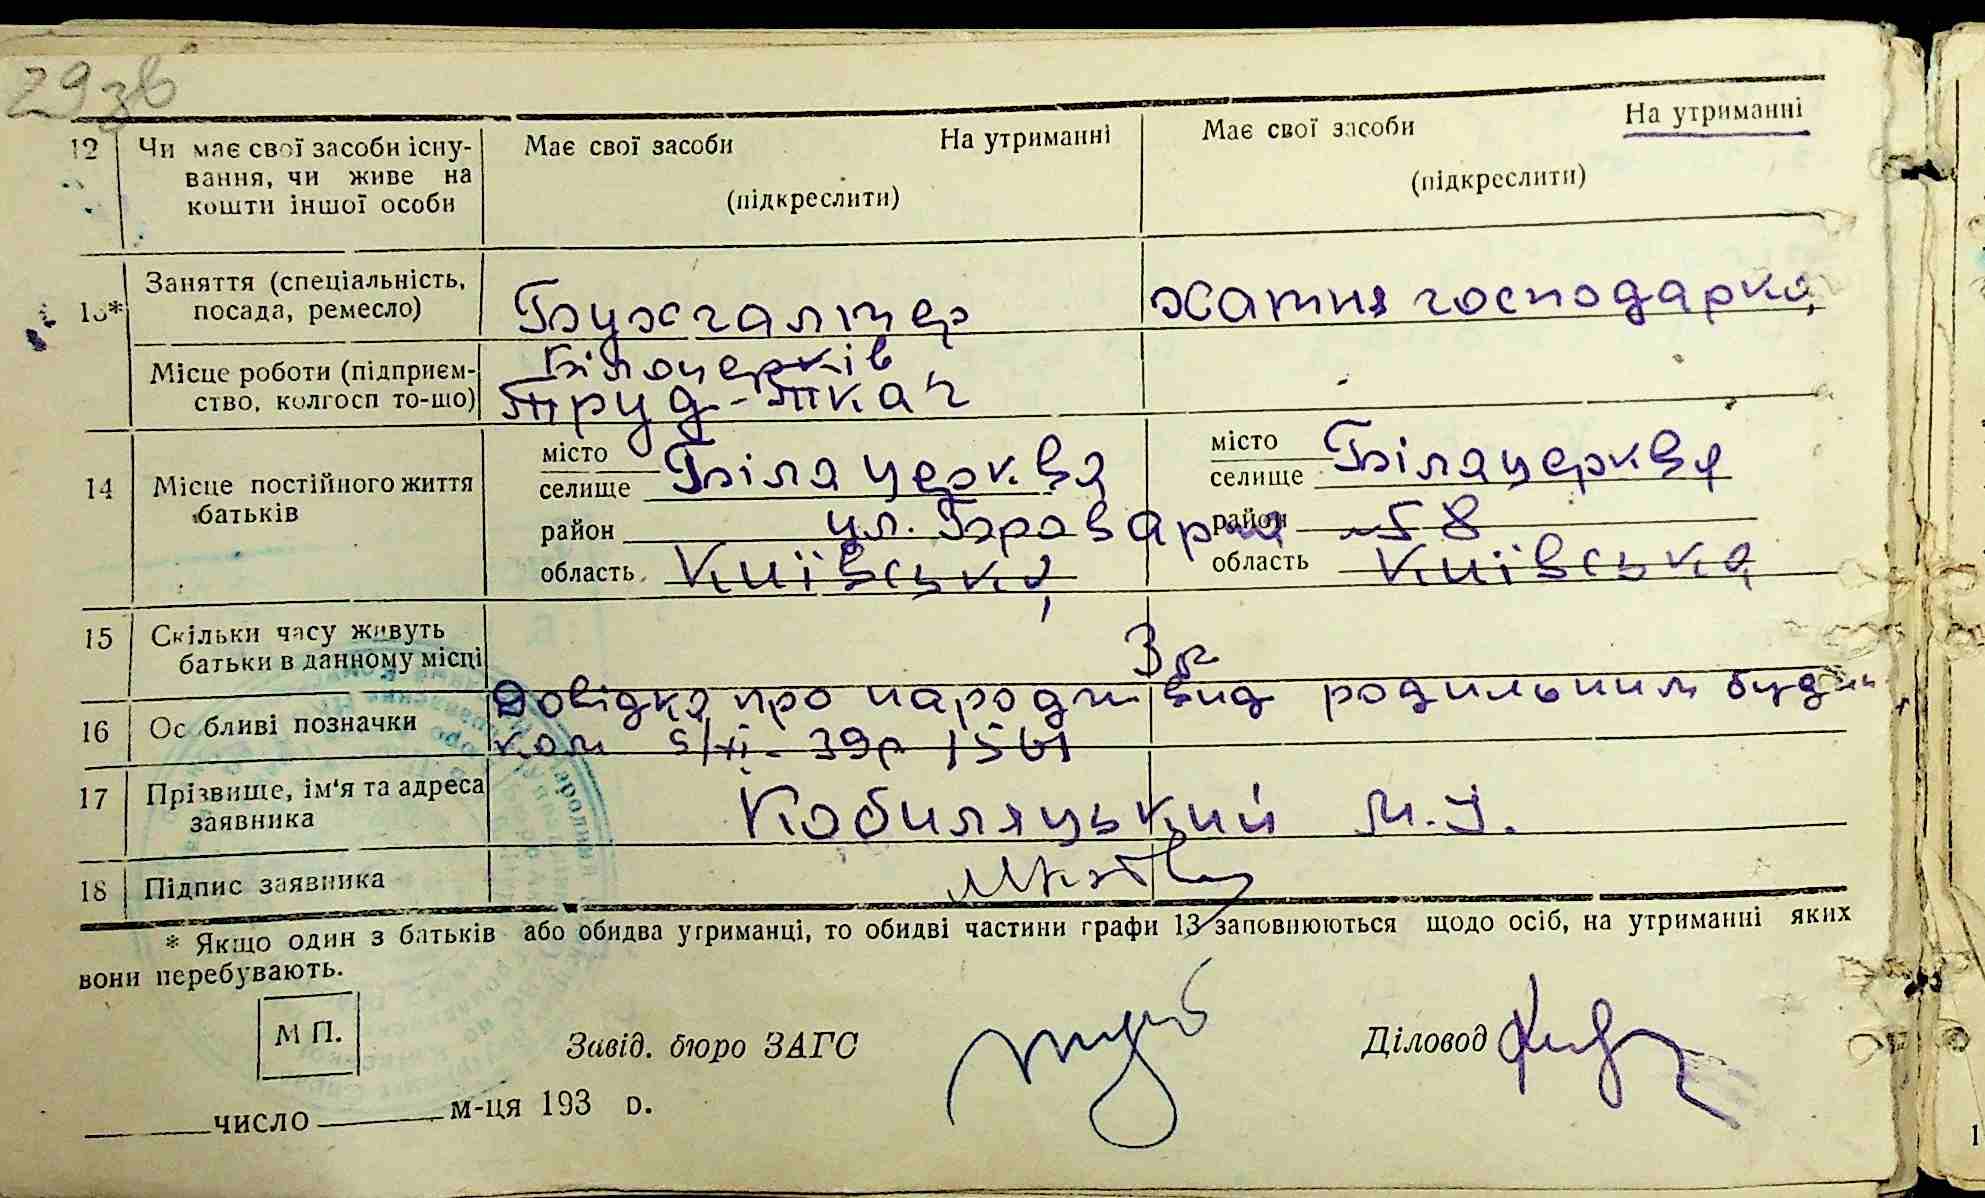 29зв
12 Чи має свої засоби існу- Має свої засоби На утриманні Має свої засоби На утриманні
вання, чи живе на (підкреслити) (підкреслити)
кошти іншої особи
13* Заняття (спеціальність, Бухгалтер хатня господарка
посада, ремесло)
Місце роботи (підприєм- Білоцерків
ство, колгосп то-що) Труд-Ткач
14 Місце постійного життя батьків
місто Біла церква місто Біла церква
селище селище
район ул. Броварна район №58
область Київська область Київська
15 Скільки часу живуть 3 р
батьки в данному місці
16 Ос бливі позначки Довідка про народж вид родильним будин
ком 5/XI-39р 1561
17 Прізвище, ім'я та адреса Кобиляцький М. Й.
заявника
18 Підпис заявника
* Якщо один з батьків або обидва утриманці, то обидві частини графи 13 заповнюються щодо осіб, на утриманні яких
вони перебувають.
М П. Завід. бюро ЗАГС Діловод
число м-ця 193 р.